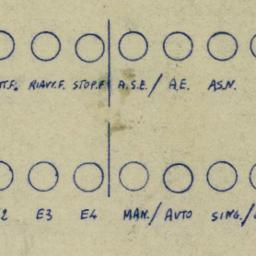 RIAVV.F. STOP.F. A.S.E./ A.E. AS.N.
2 E3 E4 MAN./ AUTO SING./